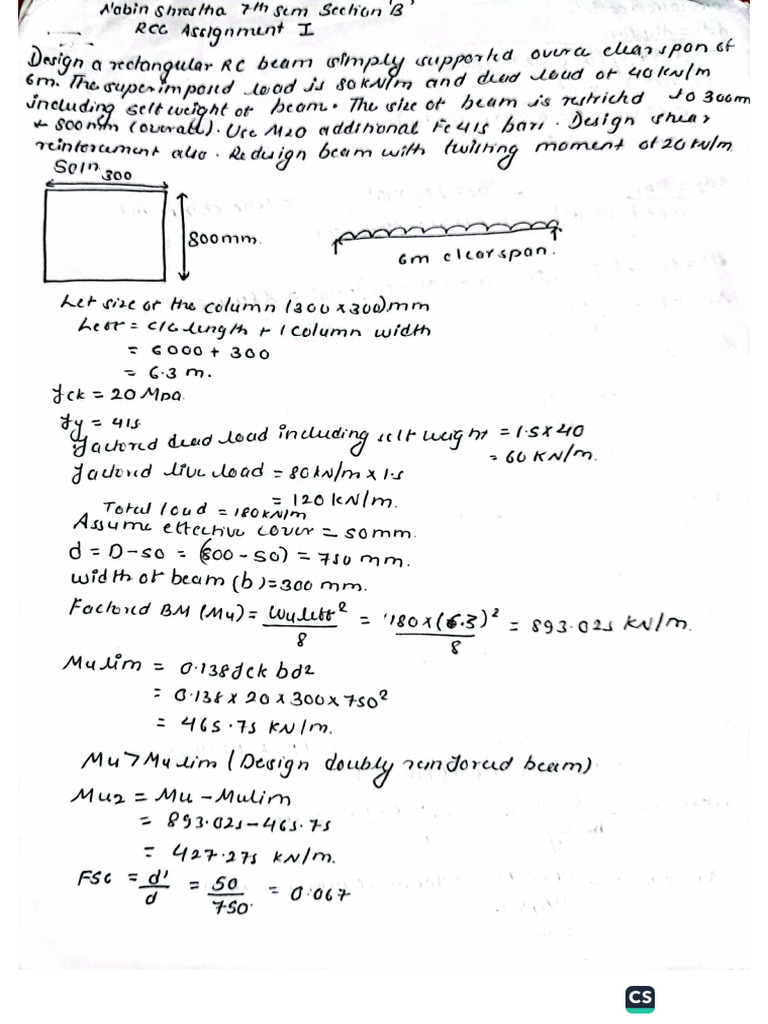 Nabin Shrestha 7th sem Section 'B'
RCC Assignment I
Design a rectangular RC beam simply supported over a clear span of
6m. The superimposed load is 80 kN/m and dead load of 40 kN/m
including self weight of beam. The size of beam is restricted to 300mm
+ 800mm (overall). Use M20 additional Fe415 bars. Design shear
reinforcement also. Redesign beam with twisting moment of 20kN/m.
Soln
300
800mm.
6m clear span.
Let size of the column (300 x 300)mm
Leff = c/c length + 1 column width
= 6000 + 300
= 6.3 m.
fck = 20 Mpa.
fy = 415
factored dead load including self weight = 1.5 x 40
= 60 KN/m.
factored live load = 80 kN/m x 1.5
= 120 kN/m.
Total load = 180kN/m
Assume effective cover = 50mm.
d = D-50 = (800 - 50) = 750 mm.
width of beam (b) = 300 mm.
Factored BM (Mu) = Wuleff² / 8 = 180x(6.3)² / 8 = 893.025 KN/m.
Mulim = 0.138fck bd²
= 0.138 x 20 x 300 x 750²
= 465.75 KN/m.
Mu > Mulim (Design doubly reinforced beam)
Mu2 = Mu - Mulim
= 893.025 - 465.75
= 427.275 KN/m.
FSC = d'/d = 50/750 = 0.067
CS